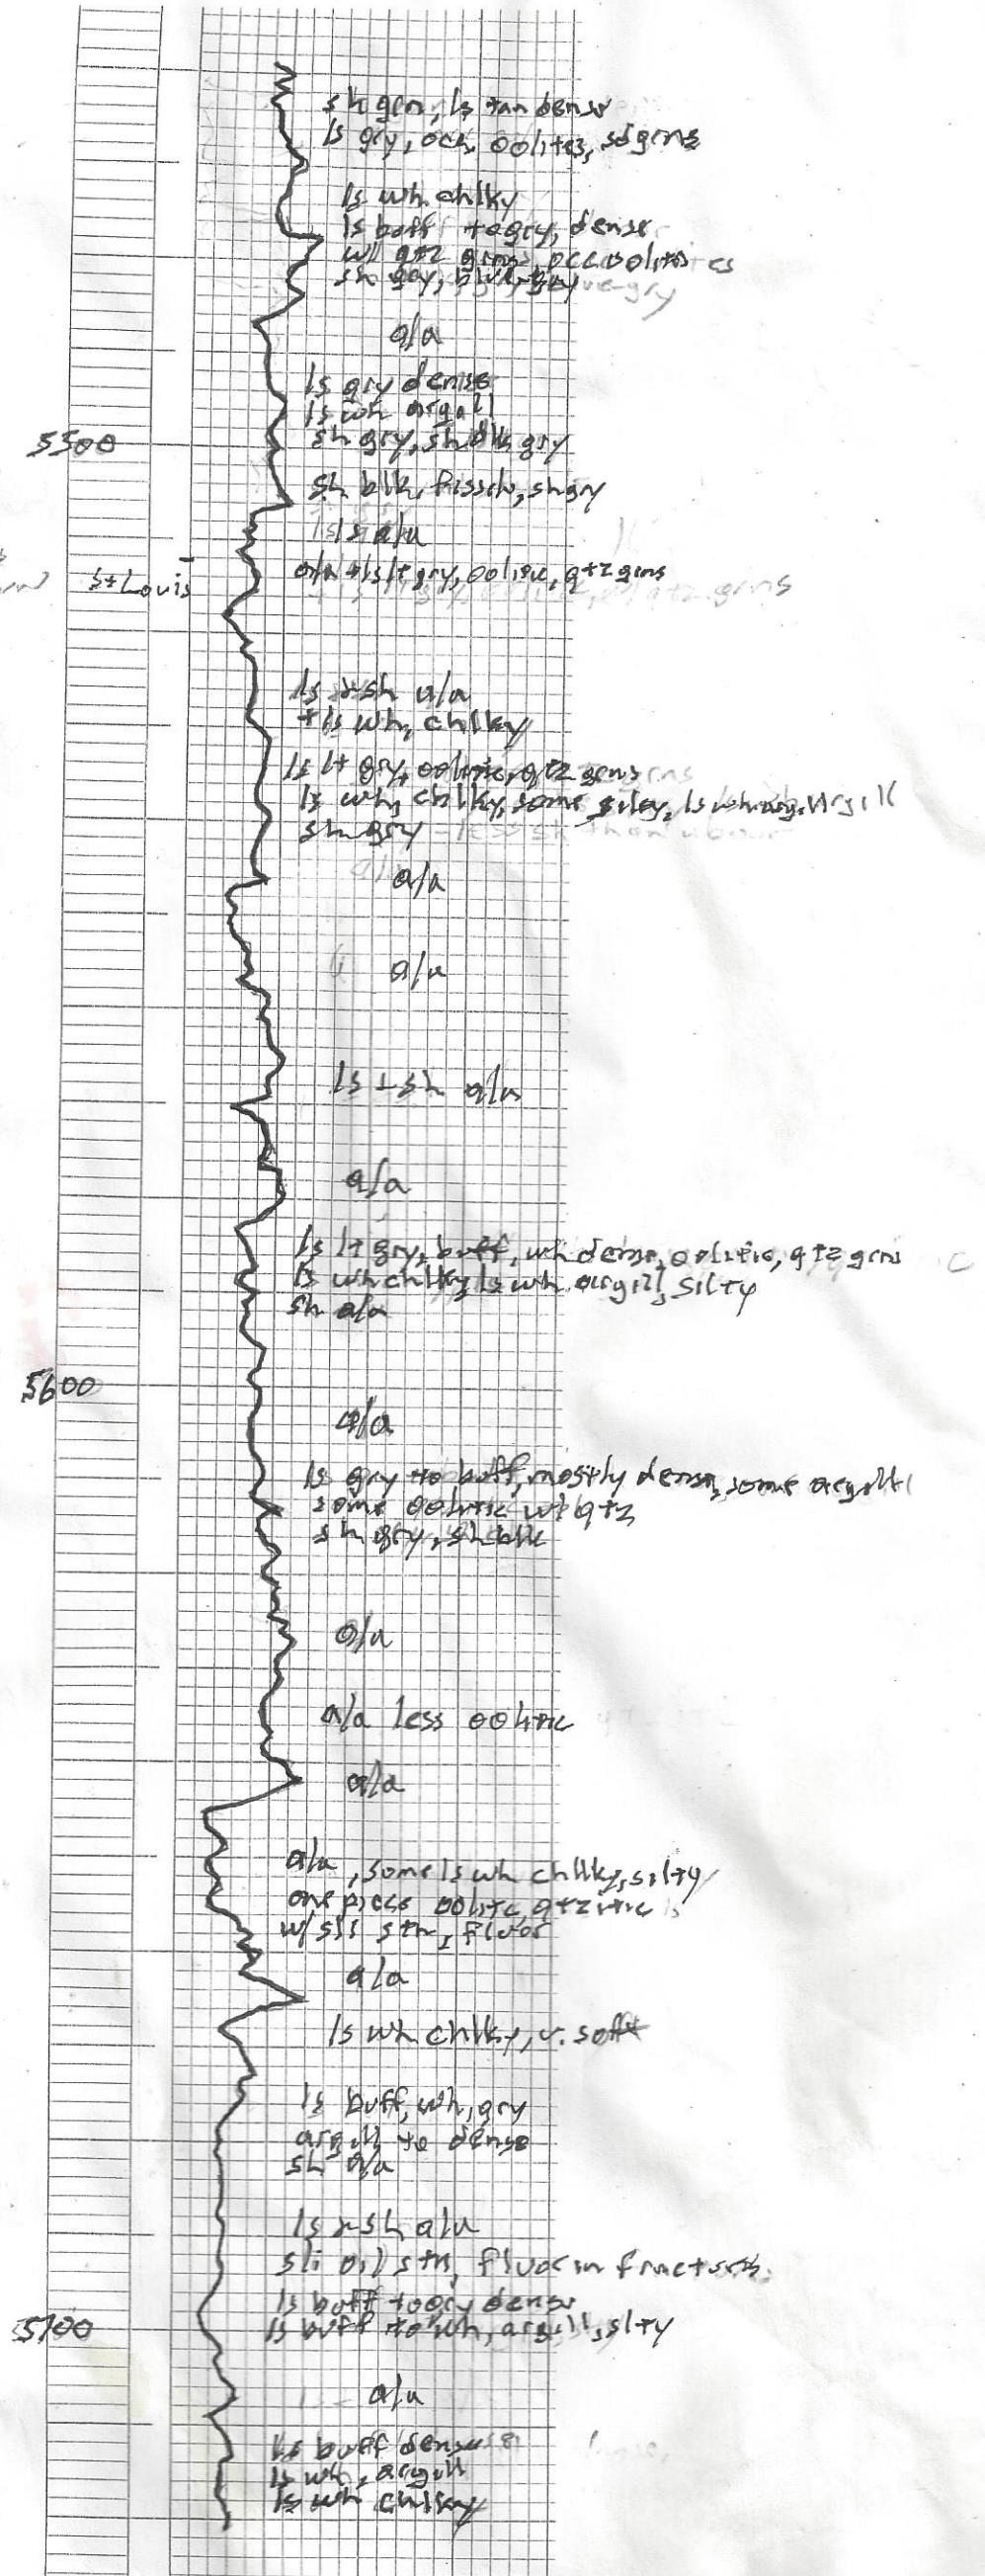 sh grn, ls tan dense
ls gry, occ oolites, sd grns
ls wh chlky
ls buff to gry, dense
w/ qtz grns, occ oolites
sh gry, blue-gry
a/a
ls gry dense
ls wh argill
5500 sh gry, sh dk gry
sh blk, fissile, sh gry
ls a/a
St Louis a/a + ls lt gry, oolitic, qtz grns
ls + sh a/a
+ ls wh, chlky
ls lt gry, oolitic, qtz grns
ls wh, chlky, some silty, ls wh argill
sh gry
a/a
a/a
ls + sh a/a
a/a
ls lt gry, buff, wh dense, oolitic, qtz grns
ls wh chlky, ls wh argill, silty
sh a/a
5600
a/a
ls gry to buff, mostly dense, some argill
some oolitic w/ qtz
sh gry, sh blk
a/a
a/a less oolitic
a/a
a/a, some ls wh chlky, silty
one piece oolitc, qtzitic ls
w/ sli stn, fluor
a/a
ls wh chlky, v. soft
ls buff, wh, gry
argill to dense
sh a/a
ls + sh a/a
sli oil stn, fluor in fractures
ls buff to gry dense
5700 ls buff to wh, argill, slty
a/a
ls buff dense
ls wh, argill
ls wh chlky